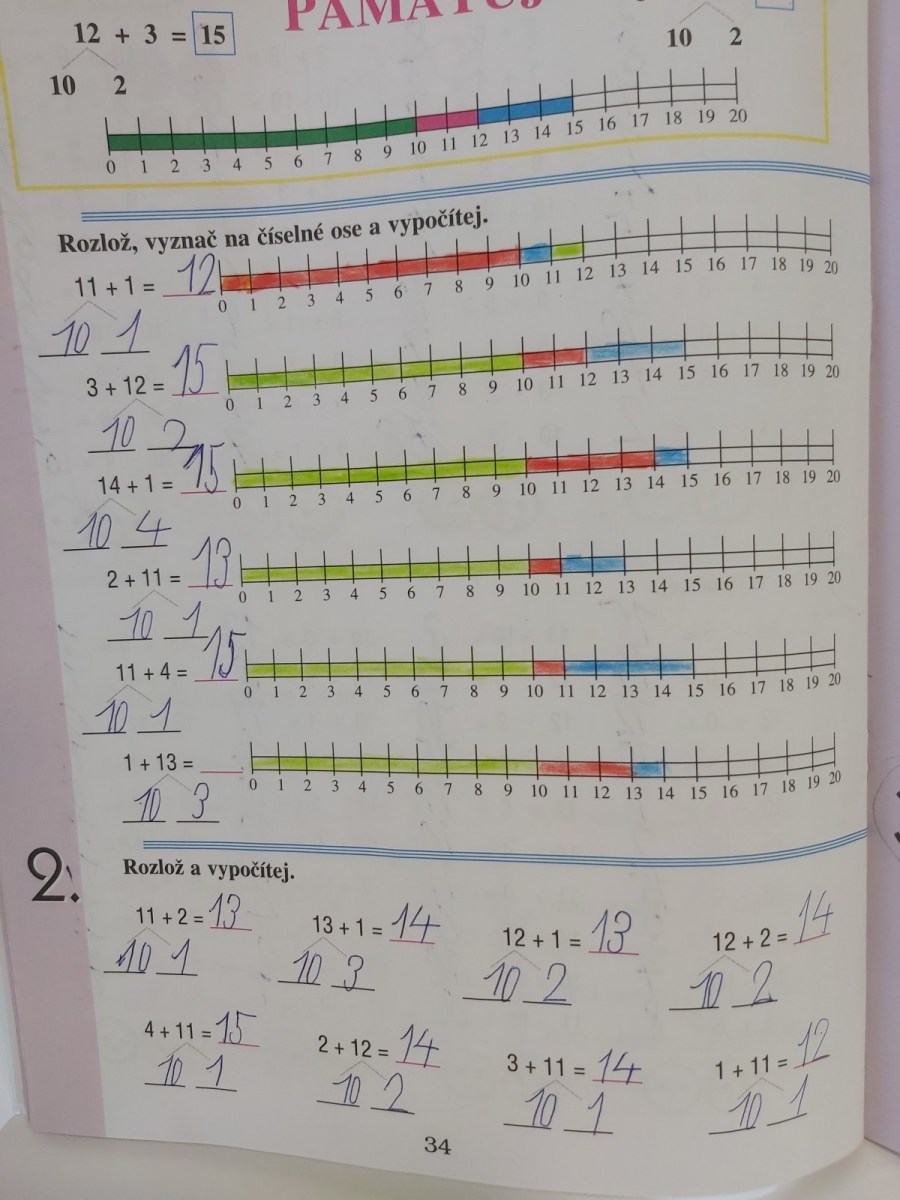 PAMATUJ
12 + 3 = 15
10 2
10 2
0 1 2 3 4 5 6 7 8 9 10 11 12 13 14 15 16 17 18 19 20
Rozlož, vyznač na číselné ose a vypočítej.
11 + 1 = 12
0 1 2 3 4 5 6 7 8 9 10 11 12 13 14 15 16 17 18 19 20
10 1
3 + 12 = 15
0 1 2 3 4 5 6 7 8 9 10 11 12 13 14 15 16 17 18 19 20
10 2
14 + 1 = 15
0 1 2 3 4 5 6 7 8 9 10 11 12 13 14 15 16 17 18 19 20
10 4
2 + 11 = 13
0 1 2 3 4 5 6 7 8 9 10 11 12 13 14 15 16 17 18 19 20
10 1
11 + 4 = 15
0 1 2 3 4 5 6 7 8 9 10 11 12 13 14 15 16 17 18 19 20
10 1
1 + 13 =
0 1 2 3 4 5 6 7 8 9 10 11 12 13 14 15 16 17 18 19 20
10 3
2.
Rozlož a vypočítej.
11 + 2 = 13 13 + 1 = 14 12 + 1 = 13 12 + 2 = 14
10 1 10 3 10 2 10 2
4 + 11 = 15 2 + 12 = 14 3 + 11 = 14 1 + 11 = 12
10 1 10 2 10 1 10 1
34